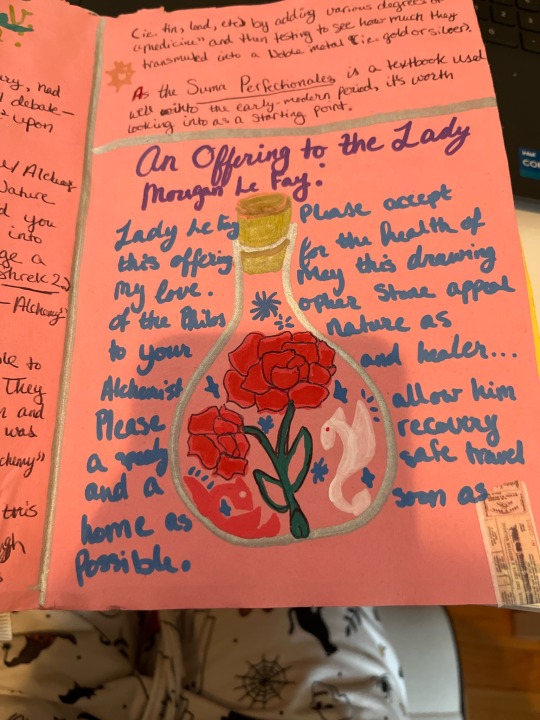 (i.e. tin, lead, etc.) by adding various degrees of
"medicine" and then testing to see how much they
transmuted into a Noble metal (i.e. gold or silver).
As the Suma Perfectionales is a textbook used
well into the early-modern period, it's worth
looking into as a starting point.
An Offering to the Lady
Morgan Le Fay:
Lady Le Fay Please accept
this offering for the health of
my love. May this drawing
of the Philos opher Stone appeal
to your nature as
Alchemist and healer...
Please allow him
a speedy recovery
and a safe travel
home as soon as
Possible.
had
debate-
upon
Alchemy
Nature
d you
into
ge a
Shrek 2)
- Alchemy"
le to
They
and
was
chemy"
this